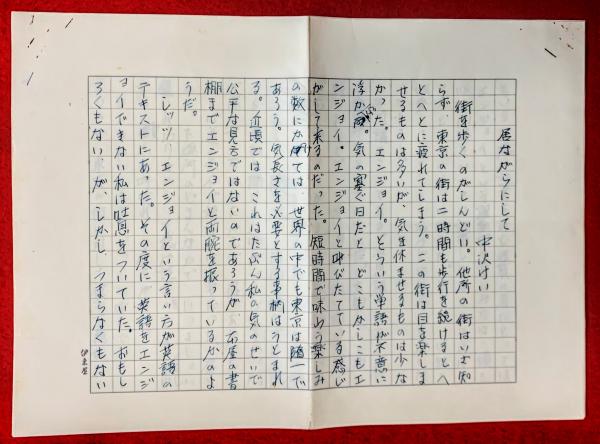 居ながらにして
中沢けい
街を歩くのがしんどい。他所の街はいざ知
らず、東京の街は二時間も歩行を続けるとへ
とへとに疲れてしまう。この街は目を楽しま
せるものは多いが、気を休ませるものは少な
かった。エンジョイ。そういう単語が不意に
浮かぶ。気の塞ぐ日だと どこもかしこもエ
ンジョイ。エンジョイと呼びたてている感じ
がして来るのだった。短時間で味わう楽しみ
の数にかけては、世界の中でも東京は随一で
あろう。気長さを必要とする事柄はうとまれ
る。近頃では、これはたぶん私の気のせいで
公平な見方ではないのであろうが、本屋の書
棚までエンジョイと両腕を振っているかのよ
うだ。
レッツ エンジョイという言い方が英語の
テキストにあった。その度に 英語をエンジ
ョイできない私は吐息をついていた。おもし
ろくもない、が、しかし、つまらなくもない
伊東屋